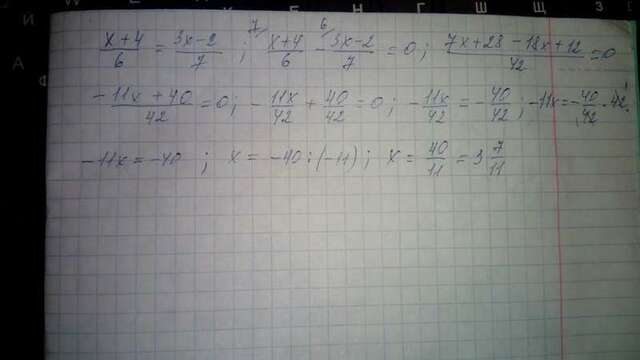 (x+4)/6 = (3x-2)/7 ; 7/ (x+4)/6 - 6/ (3x-2)/7 = 0 ; (7x+28-18x+12)/42 = 0
(-11x+40)/42 = 0 ; - 11x/42 + 40/42 = 0 ; - 11x/42 = - 40/42 ; -11x = - 40/42 · 42
-11x = -40 ; x = -40 : (-11) ; x = 40/11 = 3 7/11